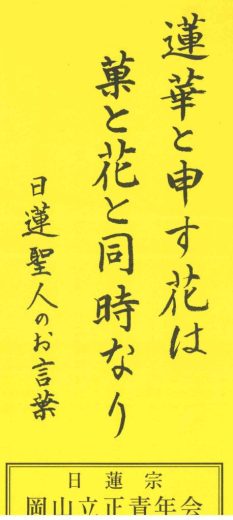 蓮華と申す花は
菓と花と同時なり
日蓮聖人のお言葉
日蓮宗
岡山立正青年会